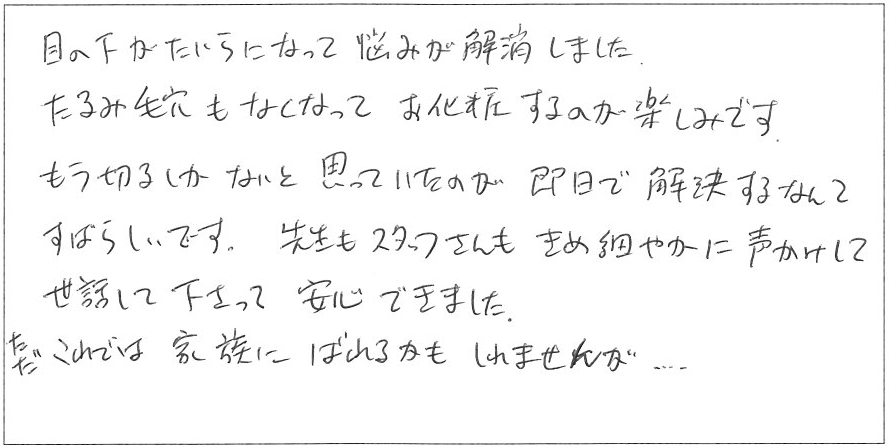 目の下がたいらになって 悩みが解消しました.
たるみ毛穴もなくなって お化粧するのが楽しみです.
もう切るしかないと思っていたのが 即日で解決するなんて
すばらしいです. 先生もスタッフさんもきめ細やかに声かけして
世話して下さって 安心できました.
ただこれでは 家族にばれるかもしれませんが....